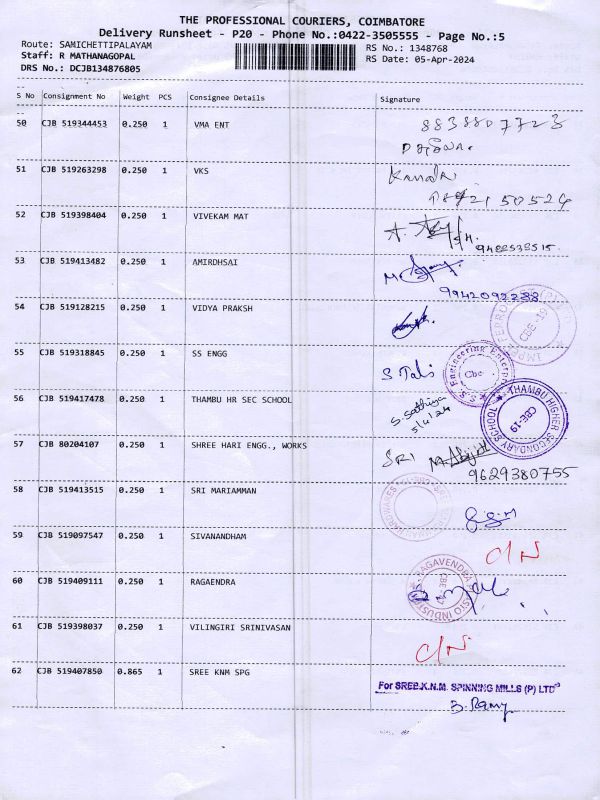 THE PROFESSIONAL COURIERS, COIMBATORE
Delivery Runsheet - P20 - Phone No.:0422-3505555 - Page No.:5
Route: SAMICHETTIPALAYAM
RS No.: 1348768
Staff: R MATHANAGOPAL
RS Date: 05-Apr-2024
DRS No.: DCJB134876805
S No Consignment No Weight PCS Consignee Details Signature
50 CJB 519344453 0.250 1 VMA ENT 8838807723
51 CJB 519263298 0.250 1 VKS
52 CJB 519398404 0.250 1 VIVEKAM MAT
9488538515
53 CJB 519413482 0.250 1 AMIRDHSAI
9942092238
54 CJB 519128215 0.250 1 VIDYA PRAKSH
CBE-19
55 CJB 519318845 0.250 1 SS ENGG
S.S. Engineering Cbe
56 CJB 519417478 0.250 1 THAMBU HR SEC SCHOOL S. Sathiya
5/4/24
THAMBU HIGHER SECONDARY SCHOOL CBE-19
57 CJB 80204107 0.250 1 SHREE HARI ENGG., WORKS SRI
9629380755
58 CJB 519413515 0.250 1 SRI MARIAMMAN
59 CJB 519097547 0.250 1 SIVANANDHAM C/N
60 CJB 519409111 0.250 1 RAGAENDRA
RAGAVENDRA
61 CJB 519398037 0.250 1 VILINGIRI SRINIVASAN C/N
62 CJB 519407850 0.865 1 SREE KNM SPG
For SREE.K.N.M. SPINNING MILLS (P) LTD